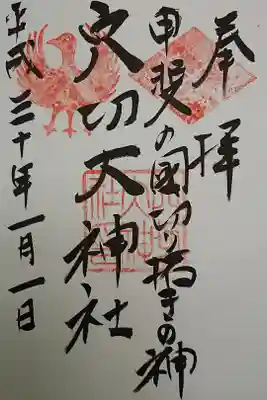 奉拝
甲斐の国切り拓きの神
穴切大神社
平成三十年一月一日